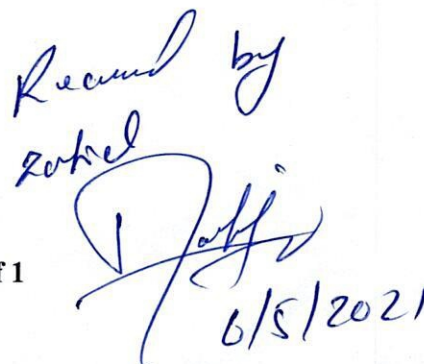 Received by
Zahid
f 1
6/5/2021